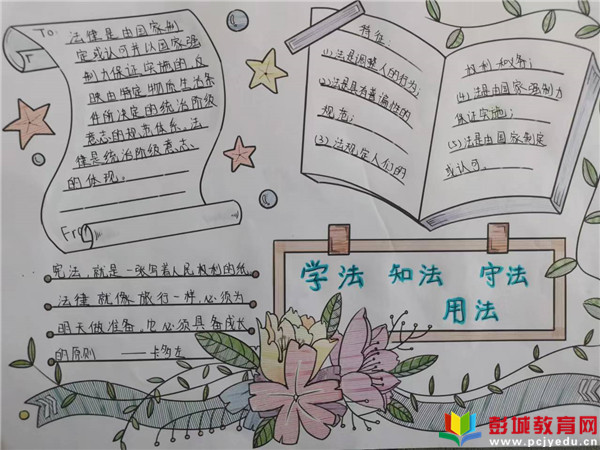 To:
法律是由国家制
定或认可并以国家强
制力保证实施的,反
映由特定物质生活条
件所决定的统治阶级
意志的规范体系。法
律是统治阶级意志
的体现。
From
特征:
(1)法是调整人的行为;
(2)法是具有普遍性的
规范;
(3)法规定人们的
权利和义务;
(4)法是由国家强制力
保证实施;
(5)法是由国家制定
或认可。
宪法,就是一张写着人民权利的纸
法律就像旅行一样,必须为
明天做准备,它必须具备成长
的原则 ——卡多佐
学法 知法 守法
用法
彭城教育网
www.pcjyedu.cn